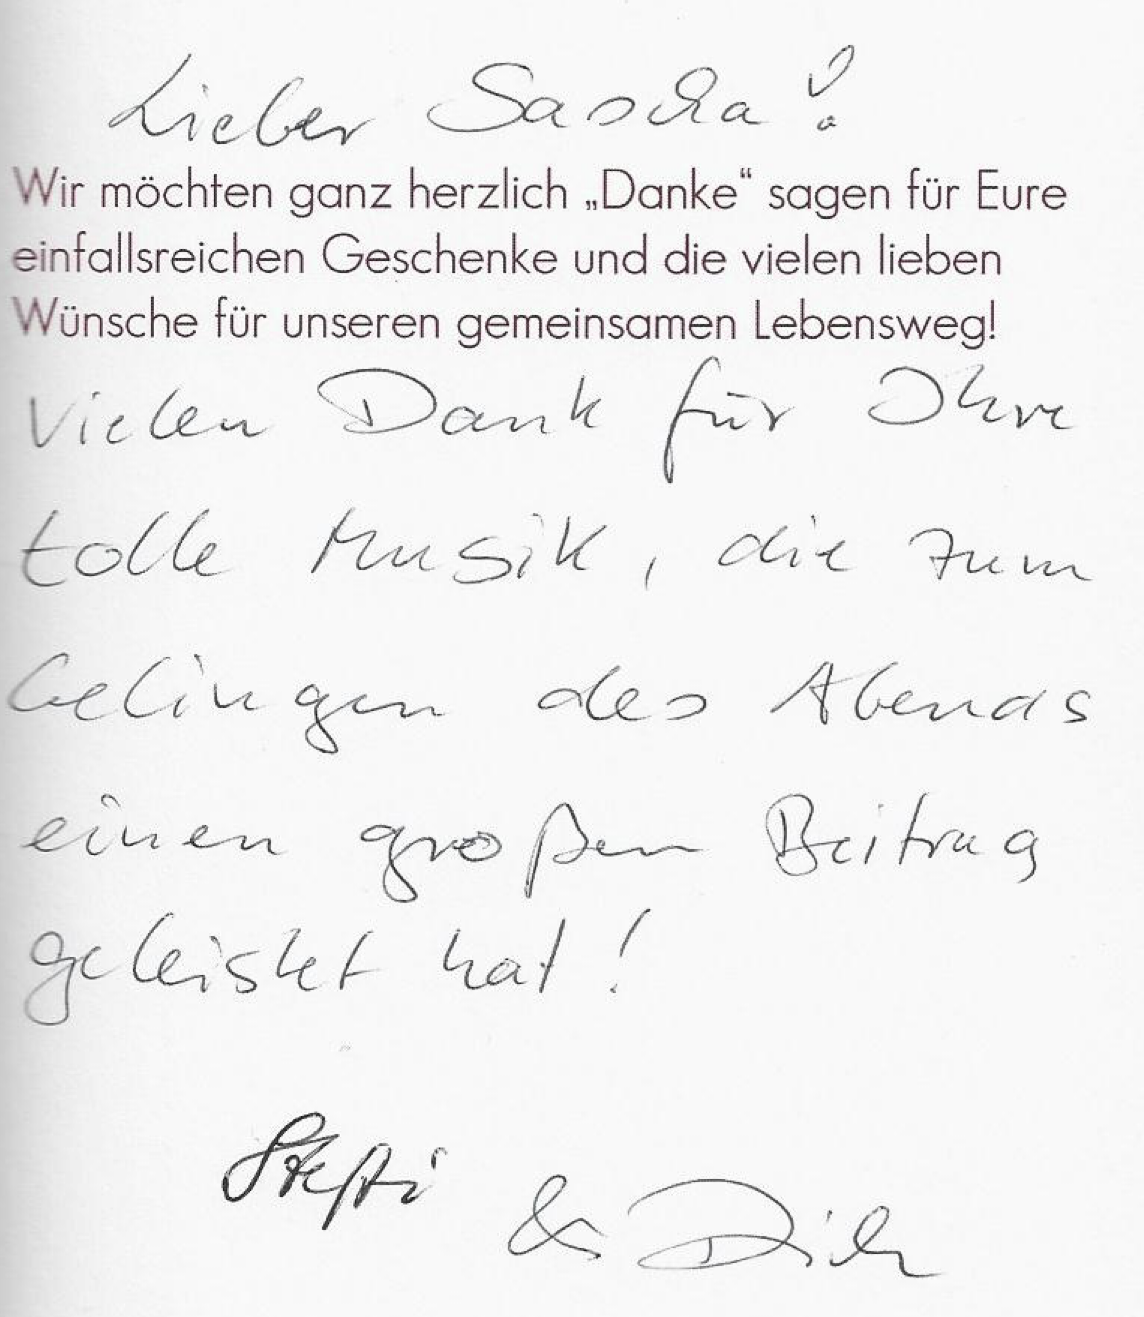 Lieber Sascha!
Wir möchten ganz herzlich „Danke“ sagen für Eure
einfallsreichen Geschenke und die vielen lieben
Wünsche für unseren gemeinsamen Lebensweg!
Vielen Dank für Ihre
tolle Musik, die zum
Gelingen des Abends
einen großen Beitrag
geleistet hat!
Steffi
&